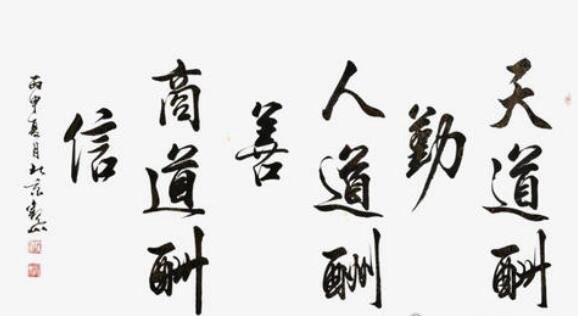 天道酬
勤
人道酬
善
商道酬
信
丙申月北京